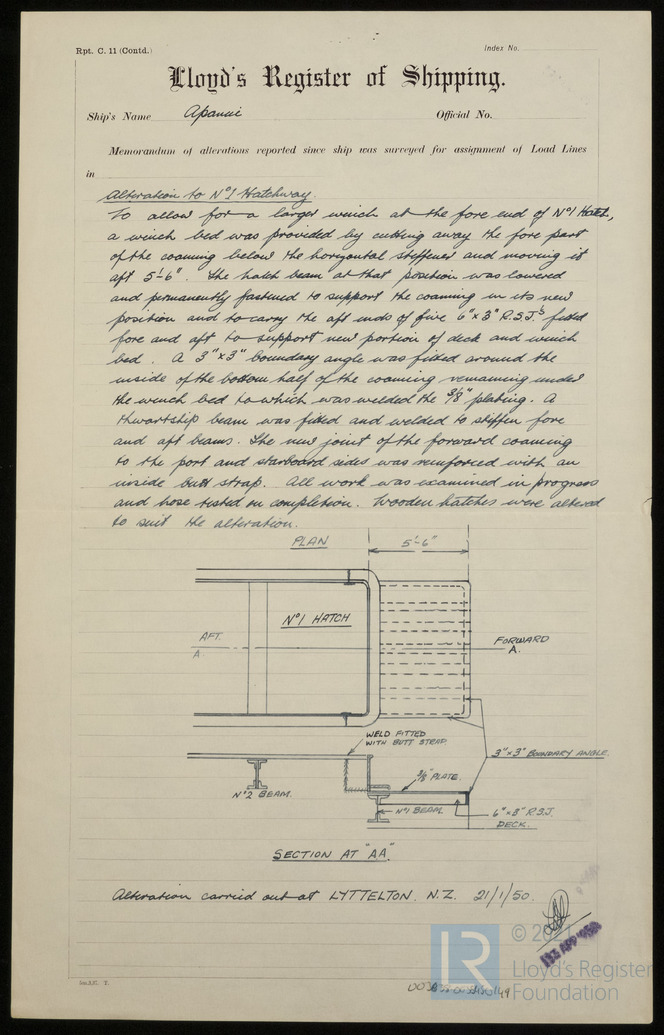 Rpt. C. 11 (Contd.)
Index No.
Lloyd's Register of Shipping.
Ship's Name Apanui
Official No.
Memorandum of alterations reported since ship was surveyed for assignment of Load Lines
in
Alteration to No1 Hatchway.
To allow for a larger winch at the fore end of No1 Hatch,
a winch bed was provided by cutting away the fore part
of the coaming below the horizontal stiffener and moving it
aft 5'-6". The hatch beam at that position was lowered
and permanently fastened to support the coaming in its new
position and to carry the aft ends of five 6"x3" R.S.J.s fitted
fore and aft to support new portion of deck and winch
bed. A 3"x3" boundary angle was fitted around the
inside of the bottom half of the coaming remaining under
the winch bed to which was welded the 3/8" plating. A
thwartship beam was fitted and welded to stiffen fore
and aft beams. The new joint of the forward coaming
to the port and starboard sides was reinforced with an
inside butt strap. All work was examined in progress
and hose tested on completion. Wooden hatches were altered
to suit the alteration.
PLAN
5'-6"
No1 HATCH
AFT.
A.
FORWARD
A.
WELD FITTED
WITH BUTT STRAP
3"x3" BOUNDARY ANGLE.
3/8" PLATE.
No2 BEAM.
No1 BEAM.
6"x3" R.S.J.
DECK.
SECTION AT "AA".
Alteration carried out at LYTTELTON. N.Z. 21/1/50.
APR 1950
© 2021
LR
Lloyd's Register
Foundation